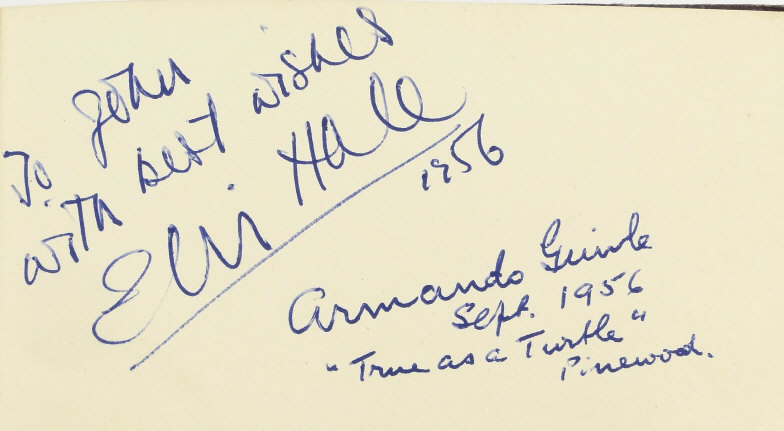 To John
with best wishes
Elvi Hale
1956
Armando Guinle
Sept. 1956
"True as a Turtle"
Pinewood.